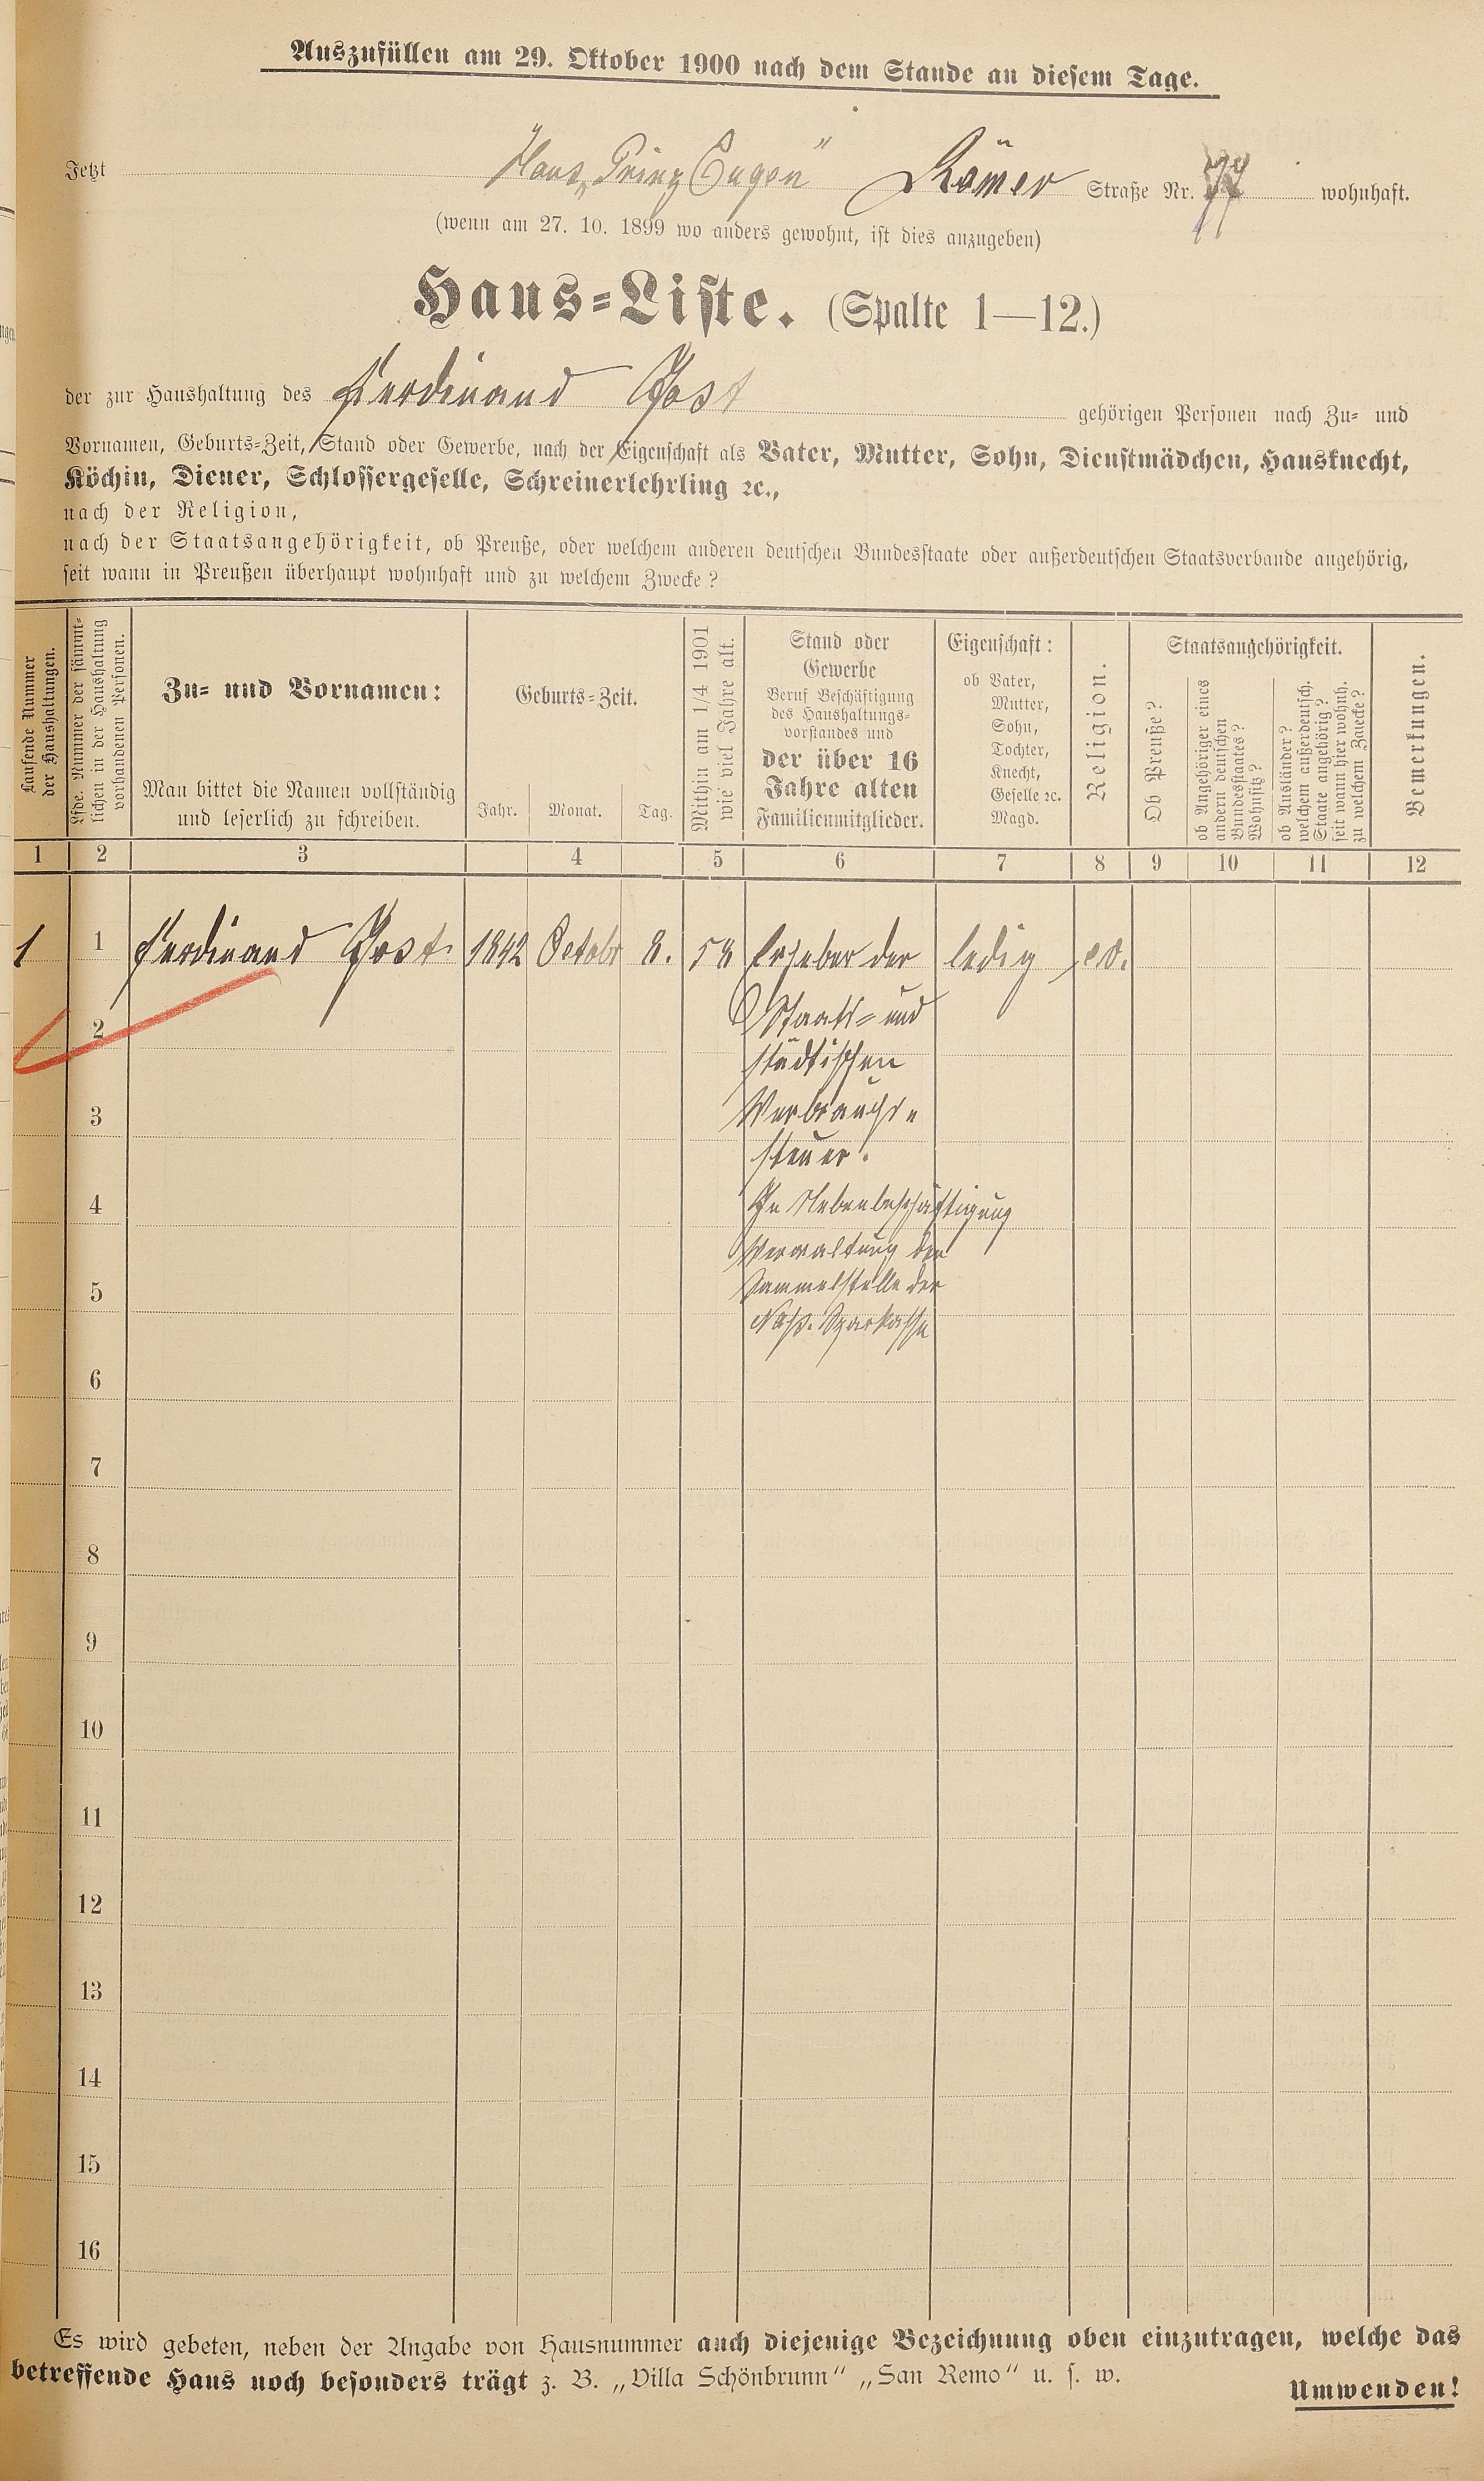 Auszufüllen am 29. Oktober 1900 nach dem Stande an diesem Tage.
Jetzt Haus „Prinz Eugen“ Römer Straße Nr. wohnhaft.
(wenn am 27. 10. 1899 wo anders gewohnt, ist dies anzugeben)
Haus-Liste. (Spalte 1—12.)
der zur Haushaltung des Ferdinand Jost gehörigen Personen nach Zu- und
Vornamen, Geburts-Zeit, Stand oder Gewerbe, nach der Eigenschaft als Vater, Mutter, Sohn, Dienstmädchen, Hausknecht,
Köchin, Diener, Schlossergeselle, Schreinerlehrling ꝛc.,
nach der Religion,
nach der Staatsangehörigkeit, ob Preuße, oder welchem anderen deutschen Bundesstaate oder außerdeutschen Staatsverbande angehörig,
seit wann in Preußen überhaupt wohnhaft und zu welchem Zwecke?
Laufende Nummer
der Haushaltungen.
Lfde. Nummer der sämmt-
lichen in der Haushaltung
vorhandenen Personen.
Zu- und Vornamen:
Man bittet die Namen vollständig
und leserlich zu schreiben.
Geburts-Zeit.
Jahr. Monat. Tag.
Mithin am 1/4 1901
wie viel Jahre alt.
Stand oder
Gewerbe
Beruf Beschäftigung
des Haushaltungs-
vorstandes und
der über 16
Jahre alten
Familienmitglieder.
Eigenschaft:
ob Vater,
Mutter,
Sohn,
Tochter,
Knecht,
Geselle ꝛc.
Magd.
Religion.
Staatsangehörigkeit.
Ob Preuße?
ob Angehöriger eines
andern deutschen
Bundesstaates?
Wohnsitz?
ob Ausländer?
welchem außerdeutsch.
Staate angehörig?
seit wann hier wohnh.
zu welchem Zwecke?
Bemerkungen.
1 2 3 4 5 6 7 8 9 10 11 12
1 1 Ferdinand Jost. 1842 Octobr 8. 58 Erheber der ledig ev.
Staats- und
2
städtischen
3 Verbrauchs-
steuer.
4 In Nebenbeschäftigung
Verwaltung der
5 Sammelstelle der
Nass. Sparkasse
6
7
8
9
10
11
12
13
14
15
16
Es wird gebeten, neben der Angabe von Hausnummer auch diejenige Bezeichnung oben einzutragen, welche das
betreffende Haus noch besonders trägt z. B. „Villa Schönbrunn“ „San Remo“ u. s. w.
Umwenden!